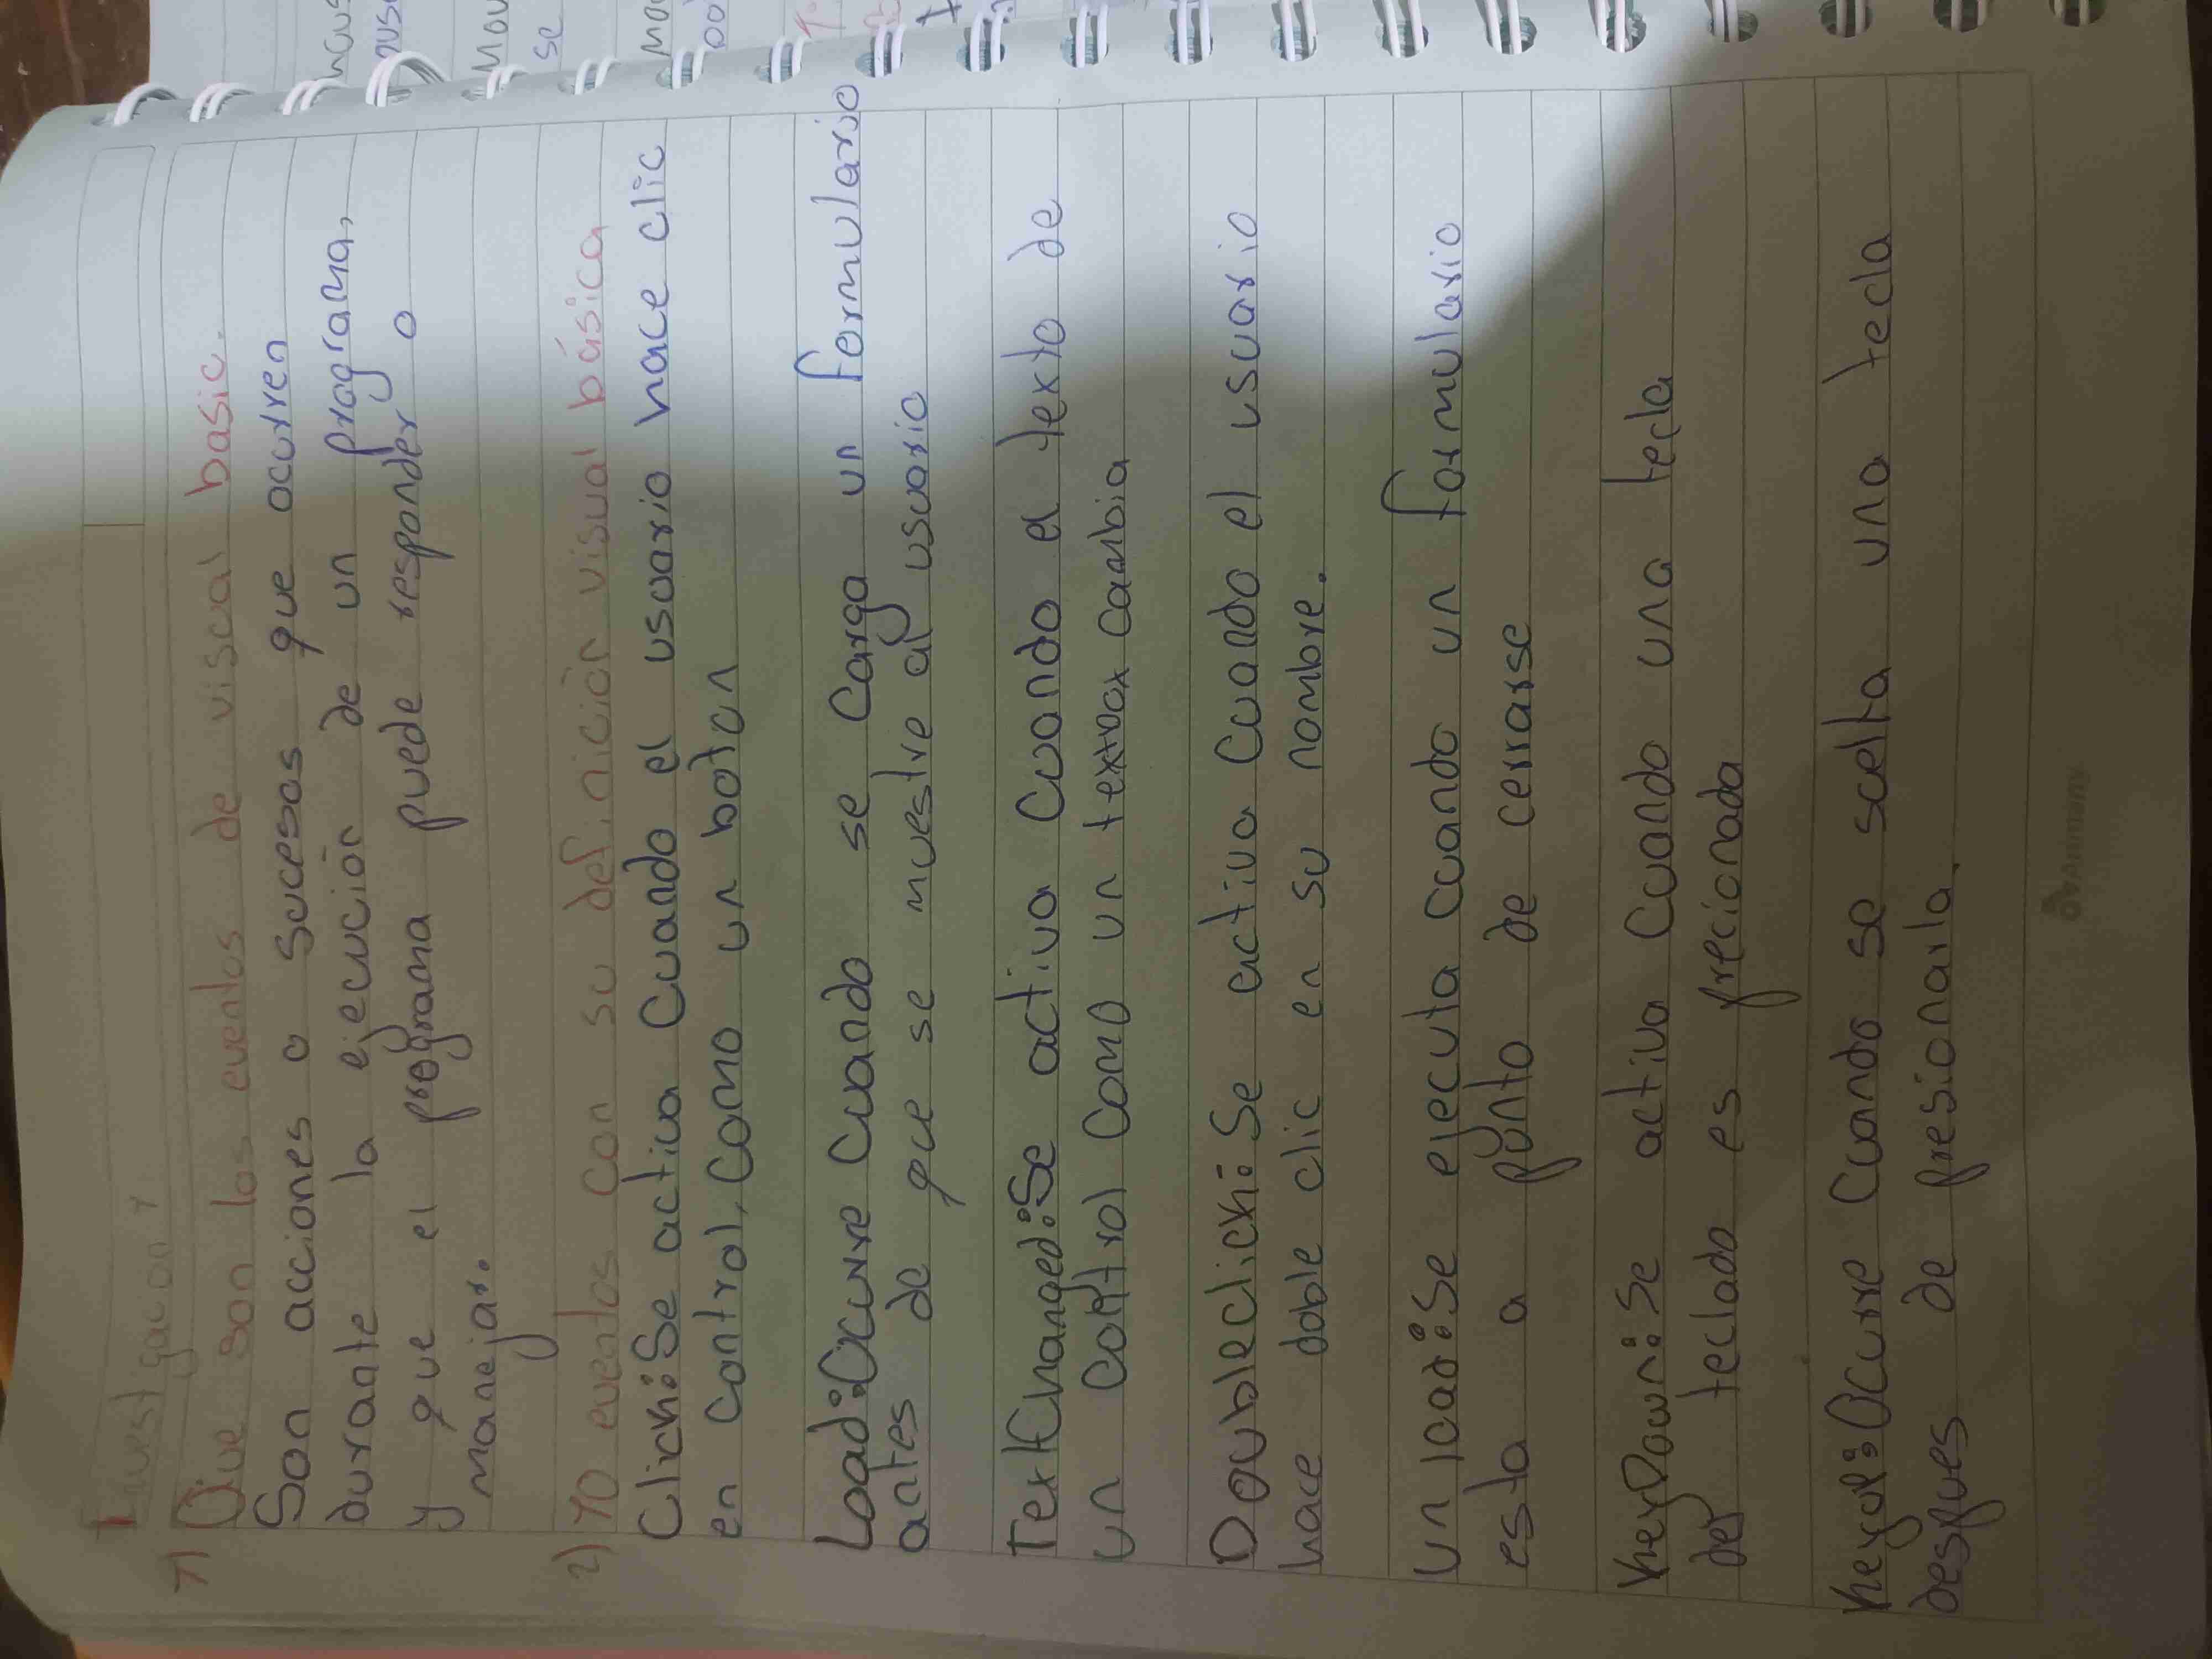 Investigacion 1
1) Que son los eventos de viscual basic.
Son acciones o sucesos que ocurren
durante la ejecución de un programa,
y que el programa puede responder o
manejar.
2) 10 eventos con su definición visual básica
Click: Se activa Cuando el usuario hace clic
en control, como un boton
Load: Ocurre Cuando se Carga un formulario
antes de que se muestre al usuario
TextChanged: Se activa Cuando el texto de
un control como un textbox cambia
Doubleclick: Se activa Cuando el usuario
hace doble clic en su nombre.
Unload: Se ejecuta cuando un formulario
esta a punto de cerrarse
KeyDown: Se activa Cuando una tecla
del teclado es precionada
Keyup: Ocurre Cuando se scelta una tecla
despues de presionarla.
Mou
se